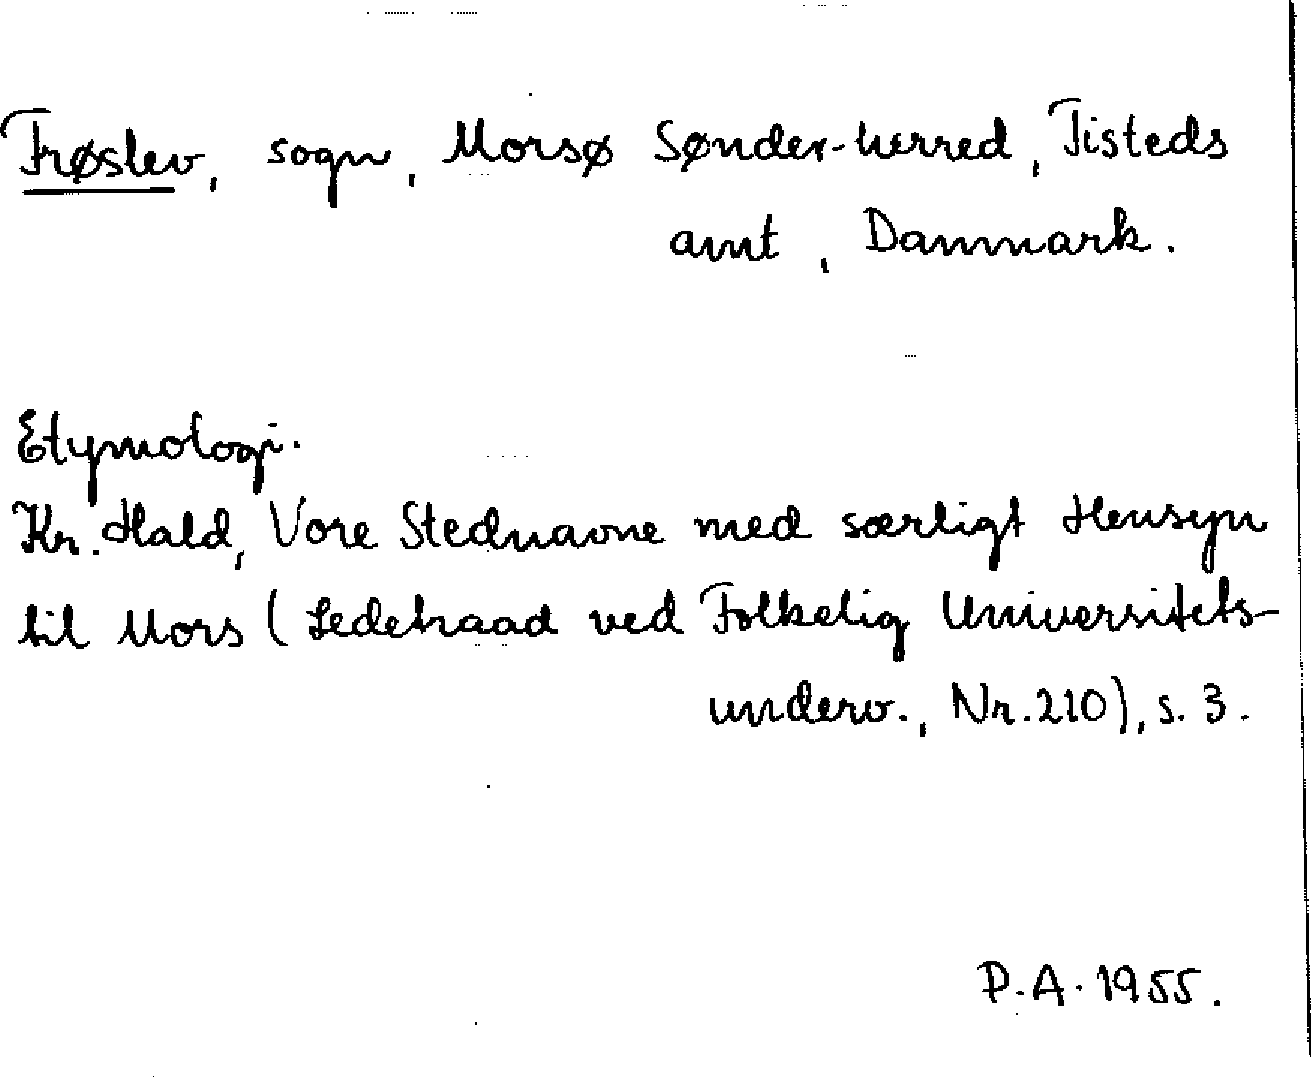 Frøslev, sogn, Morsø Sønder-herred, Tisteds
amt, Danmark.
Etymologi.
Kr. Hald, Vore Stednavne med særligt Hensyn
til Mors (Ledetraad ved Folkelig Universitets-
underv., Nr. 210), s. 3.
P.A. 1955.